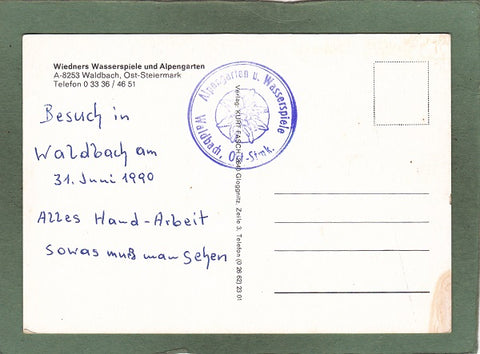 Wiedners Wasserspiele und Alpengarten
A-8253 Waldbach, Ost-Steiermark
Telefon 0 33 36 / 46 51
Besuch in
Waldbach am
31. Juni 1990
Alles Hand-Arbeit
sowas muß man sehen
Alpengarten u. Wasserspiele
Waldbach, Ost-Stmk.
Verlag KURT FASCHING, Gloggnitz, Zeile 3, Telefon (0 26 62) 23 01